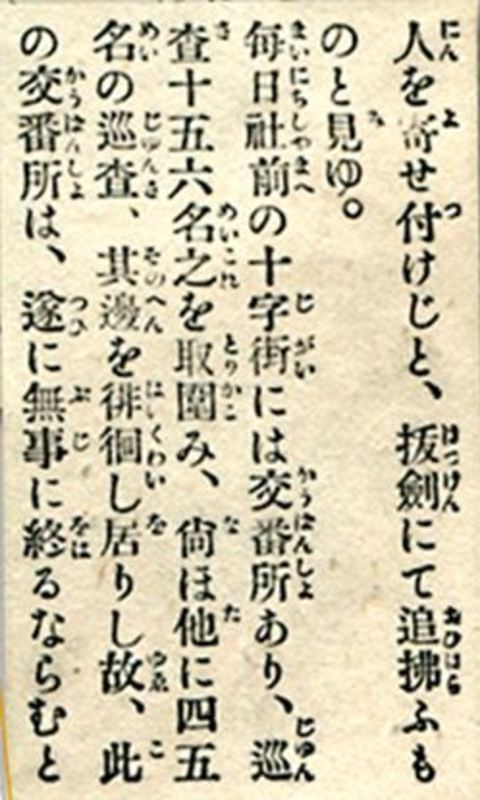 人を寄せ付けじと、拔劍にて追拂ふも
のと見ゆ。
每日社前の十字街には交番所あり、巡
査十五六名之を取圍み、尙ほ他に四五
名の巡査、其邊を徘徊し居りし故、此
の交番所は、遂に無事に終るならむと